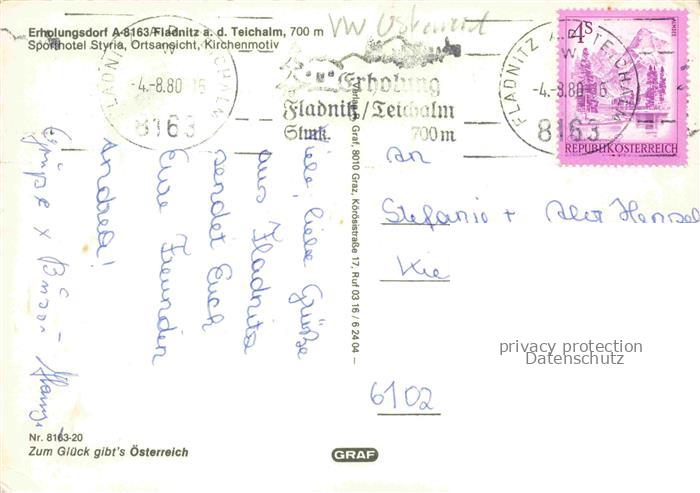 Erholungsdorf A-8163 Fladnitz a. d. Teichalm, 700 m
Sporthotel Styria, Ortsansicht, Kirchenmotiv
VW
FLADNITZ A. D. TEICHALM
-4.-8.80-16
8163
Erholung
Fladnitz/Teichalm
Stmk. 700 m
FLADNITZ A. D. TEICHALM
-4.-8.80-16
8163
4S
REPUBLIK ÖSTERREICH
Viele, liebe Grüße
aus Fladnitz
sendet Euch
Eure Freundin
Andrea!
Grüße
Verlag P. Graf, 8010 Graz, Körösistraße 17, Ruf 03 16 / 6 24 04
An
Stefanie +
6102
privacy protection
Datenschutz
Nr. 8163-20
Zum Glück gibt's Österreich
GRAF